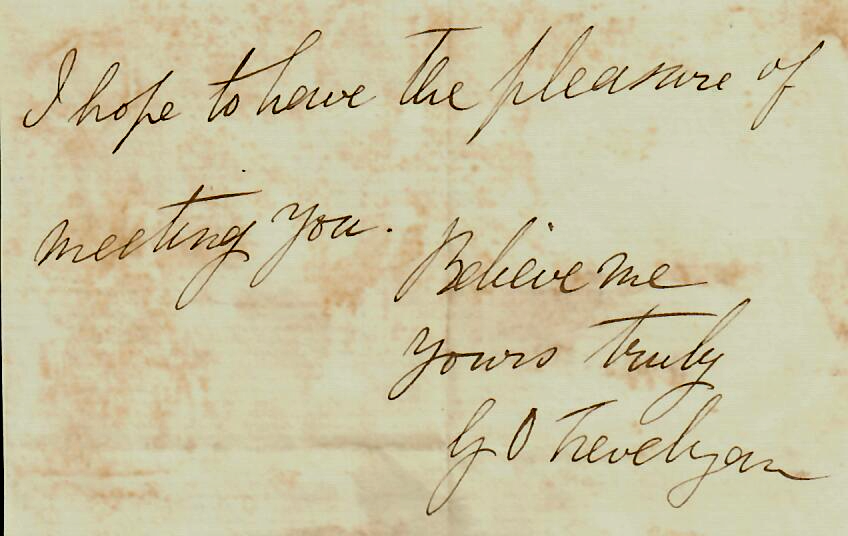 I hope to have the pleasure of
meeting you.
Believe me
yours truly
G O Trevelyan